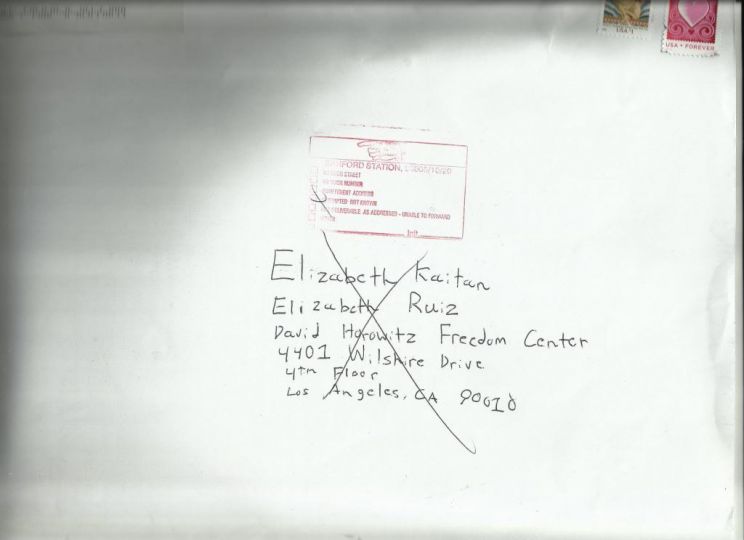 USA
USA • FOREVER
STATION,
STREET
NUMBER
ADDRESS
NOT KNOWN
DELIVERABLE AS ADDRESSED - UNABLE TO FORWARD
Init.
Elizabeth Kaitan
Elizabeth Ruiz
David Horowitz Freedom Center
4401 Wilshire Drive
4th Floor
Los Angeles, CA 90010